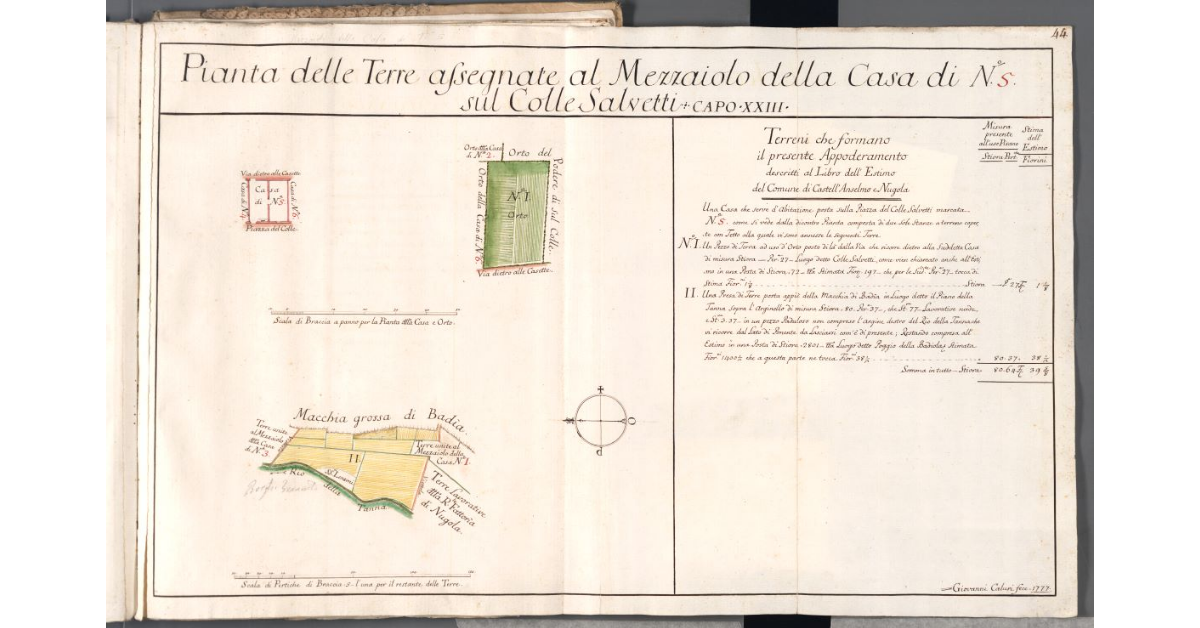 44
Pianta delle Terre assegnate al Mezzaiolo della Casa di N.º 5.
sul Colle Salvetti + CAPO · XXIII ·
Via dietro alle Casette
Casa di N.º 4
Casa
di N.º 5.
Casa di N.º 6
Piazza del Colle
Orto alla Casa
di N.º 2.
Orto del
Podere di Sul Colle.
Orto della Casa di N.º 6
N.º I.
Orto
Via dietro alle Casette
Scala di Braccia a panno per la Pianta della Casa e Orto.
Macchia grossa di Badia.
Terre unite
al Mezzaiolo
della Casa
di N.º 3.
Terre unite al
Mezzaiolo della
Casa N.º 1.
II.
Rio
della
Tanna
Terre Lavorative
della R. Fattoria
di Nugola.
Scala di Pertiche di Braccia 5. l'una per il restante delle Terre
O
Terreni che formano
il presente Appoderamento
descritti al Libro dell'Estimo
del Comune di Castell'Anselmo e Nugola.
Misura
presente
all'uso Pisano
Stiora Per.
Stima
dell'
Estimo
Fiorini
Una Casa che serve d'Abitazione posta sulla Piazza del Colle Salvetti marcata
N.º 5. come si vede dalla discontro Pianta composta di due sole Stanze a terreno coper,,
te con Tetto alla quale vi sono annesse le seguenti Terre.
N.º I. Un Pezzo di Terra ad uso d'Orto posto di là dalla Via che ricorre dietro alla Suddetta Casa
di misura Stiora — Per. 27 — Luogo detto Colle Salvetti, come vien chiamato anche all'Esti,,
mo in una Posta di Stiora 72 — Stimata Fior. 197 — che per le Sud.e Per. 27 tocca di
Stima Fior. 1 Stiora
II. Una Presa di Terre posta appiè della Macchia di Badia in Luogo detto il Piano della
Tanna sopra l'Arginello di misura Stiora 80. Per. 37 —, che St. 77 — Lavorative nude,
e St. 3. 37 — in un pezzo Padulose non compreso l'argine dietro del Rio della Tanna che
vi ricorre dal Lato di Ponente da Lasciarsi com'è di presente; Restando compresa all'
Estimo in una Posta di Stiora 2801 — Luogo detto Poggio della Badiola; Stimata
Fior. 1400½ che a questa parte ne tocca Fior. 38 80. 37. 38
Somma in tutto — Stiora 80. 64 39
Giovanni Caluri fece 1777